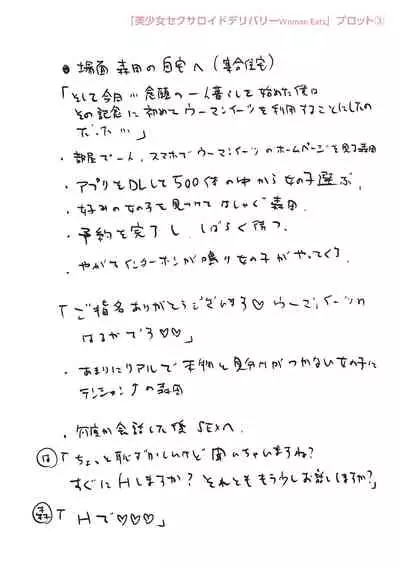 「美少女セクサロイドデリバリーWoman Eats」プロット③
● 場面 森田の自宅へ (集合住宅)
「そして今日… 念願の一人暮らしを始めた僕は
その記念に初めてウーマンイーツを利用することにしたの
だった…」
・部屋で一人、スマホでウーマンイーツのホームページを見る森田
・アプリをDLして500体の中から女の子選ぶ,
・好みの女の子を見つけてはしゃぐ森田.
・予約を完了し、しばらく待つ.
・やがてインターホンが鳴り女の子がやってくる.
「ご指名ありがとうございます♡ ウーマンイーツの
はるかです♡♡」
・あまりにリアルで本物と見分けがつかない女の子に
テンション↑の森田
・何度か会話した後 SEXへ.
は「ちょっと恥ずかしいけど聞いちゃいますね?
すぐにHしますか? それとももう少しお話しますか?」
森「Hで♡♡♡」